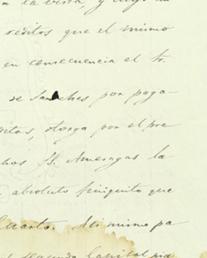 la vista, y
réditos que el mismo
en consecuencia el tr.
se Sanches por paga-
ditos, otorga por el pre
chos B. Amezagas la
absoluto finiquito que
Cuarto. Asi mismo pa
el segundo Capital